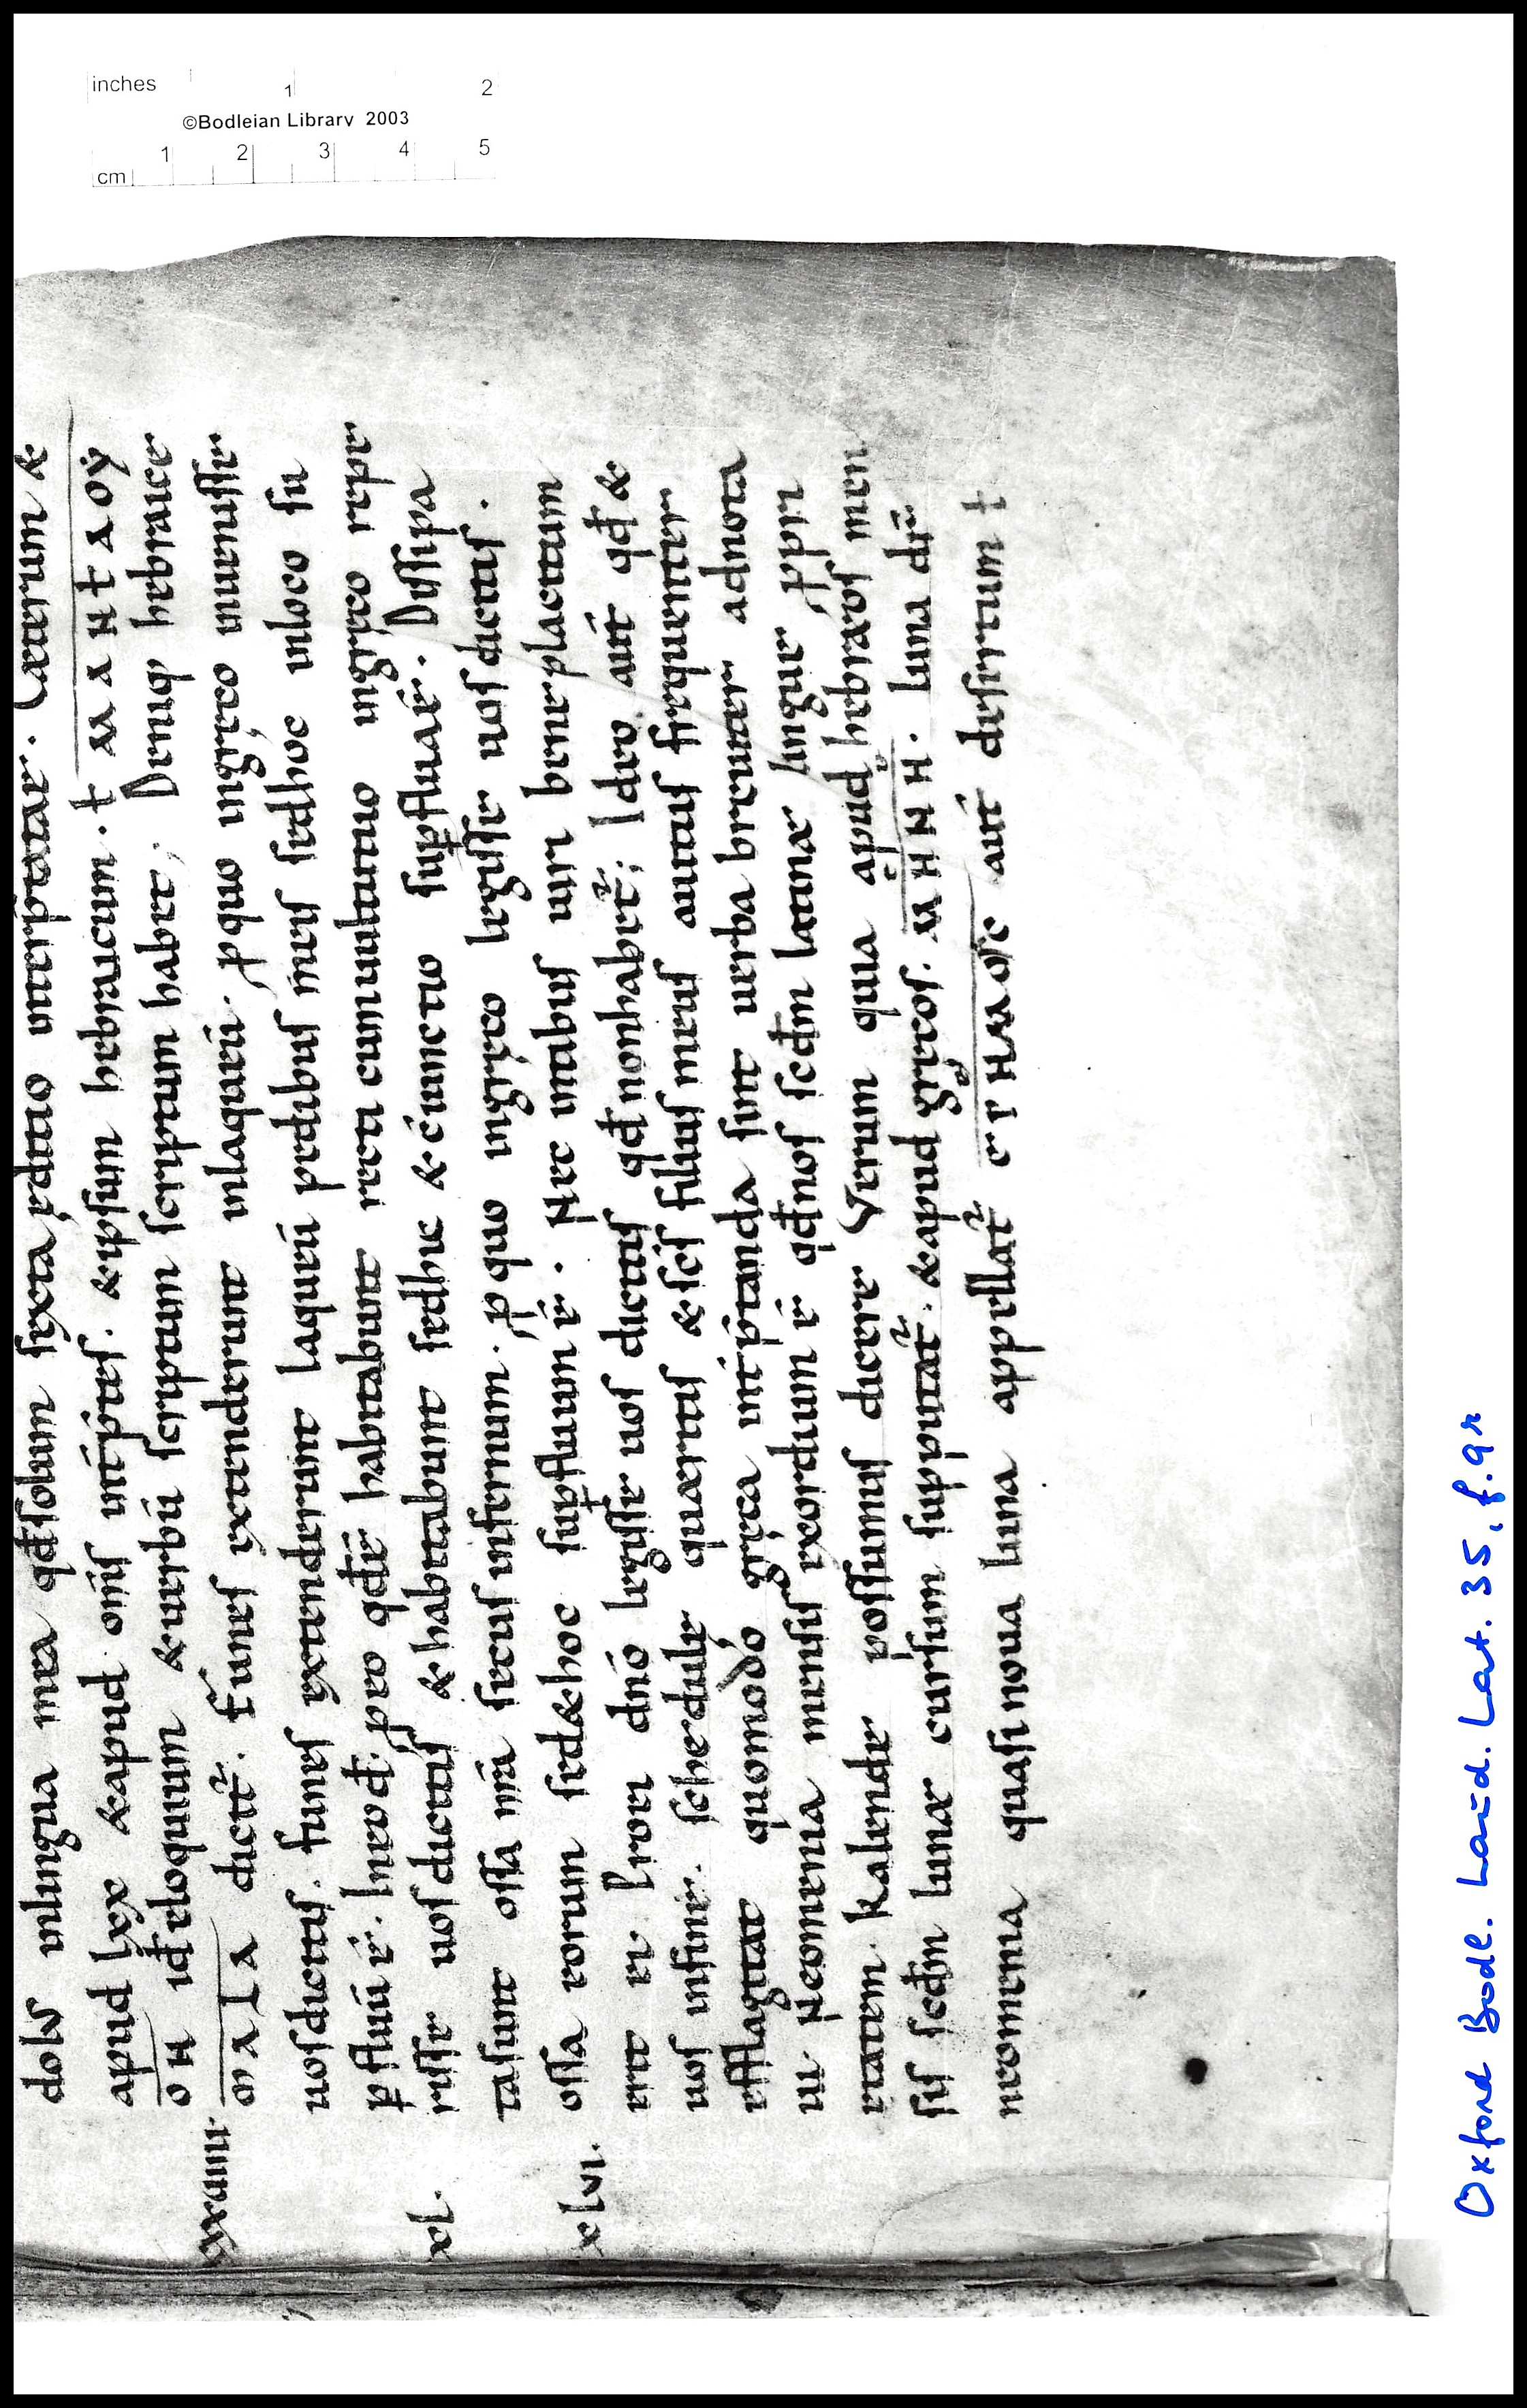 inches 1 2
©Bodleian Library 2003
cm 1 2 3 4 5
dolv inlingua mea qđsolum sexta ęditio interp̄tatae. Cæterum &
apud lxx &apud om̄s int̄p̄tes. &ipsum hebraicum. ŧ ΜΑΗΤΑΟΥ
ΟΗ id̄ eloquium &uerbū scriptum scriptum habet. Deniq; hebraice
dicit̄. funes extenderunt inlaqueū. ꝓ quo ingręco inuenisse
uosdicitis. funes extenderunt laqueū pedibus meis sedhoc inloco su
ꝑfluū ē. Ineođ. pro qđē habitabunt recti cumuultutuo ingręco repe
xl. risse uosdicitis &habitabunt sedhic &c̄iunctio suꝑfluaē. Dissipa
tasunt ossa nr̄a secus infernum. ꝓ quo ingręco legisse uosdicitis.
xlvi. ossa eorum sed&hoc suꝑfluum ē. Nec intabus uiri beneplacitum
erit ei. Proei dn̄o legisse uos dicitis qđ nonhabet̄; Ideo aut̄ qđ &
uos infine. schedule quaeritis &sc̄s filius meus auitus frequenter
efflagitat quomodo gręca int̄p̄tanda sint uerba breuiter adnota
ui. Neomenia mensis exordium ē qđnos scđm latinæ lingue ꝓpri
etatem kalende possumus dicere Verum quia apud hebræos men
sis scđm lunæ cursum supputat̄. &apud grecos. ΜΗΝΗ. luna dr̄
neomenia quasi noua luna appellat̄ ΕΡΗΜΟΣ aut̄ desertum ŧ
Oxford Bodl. Laud. Lat. 35, f. 9r